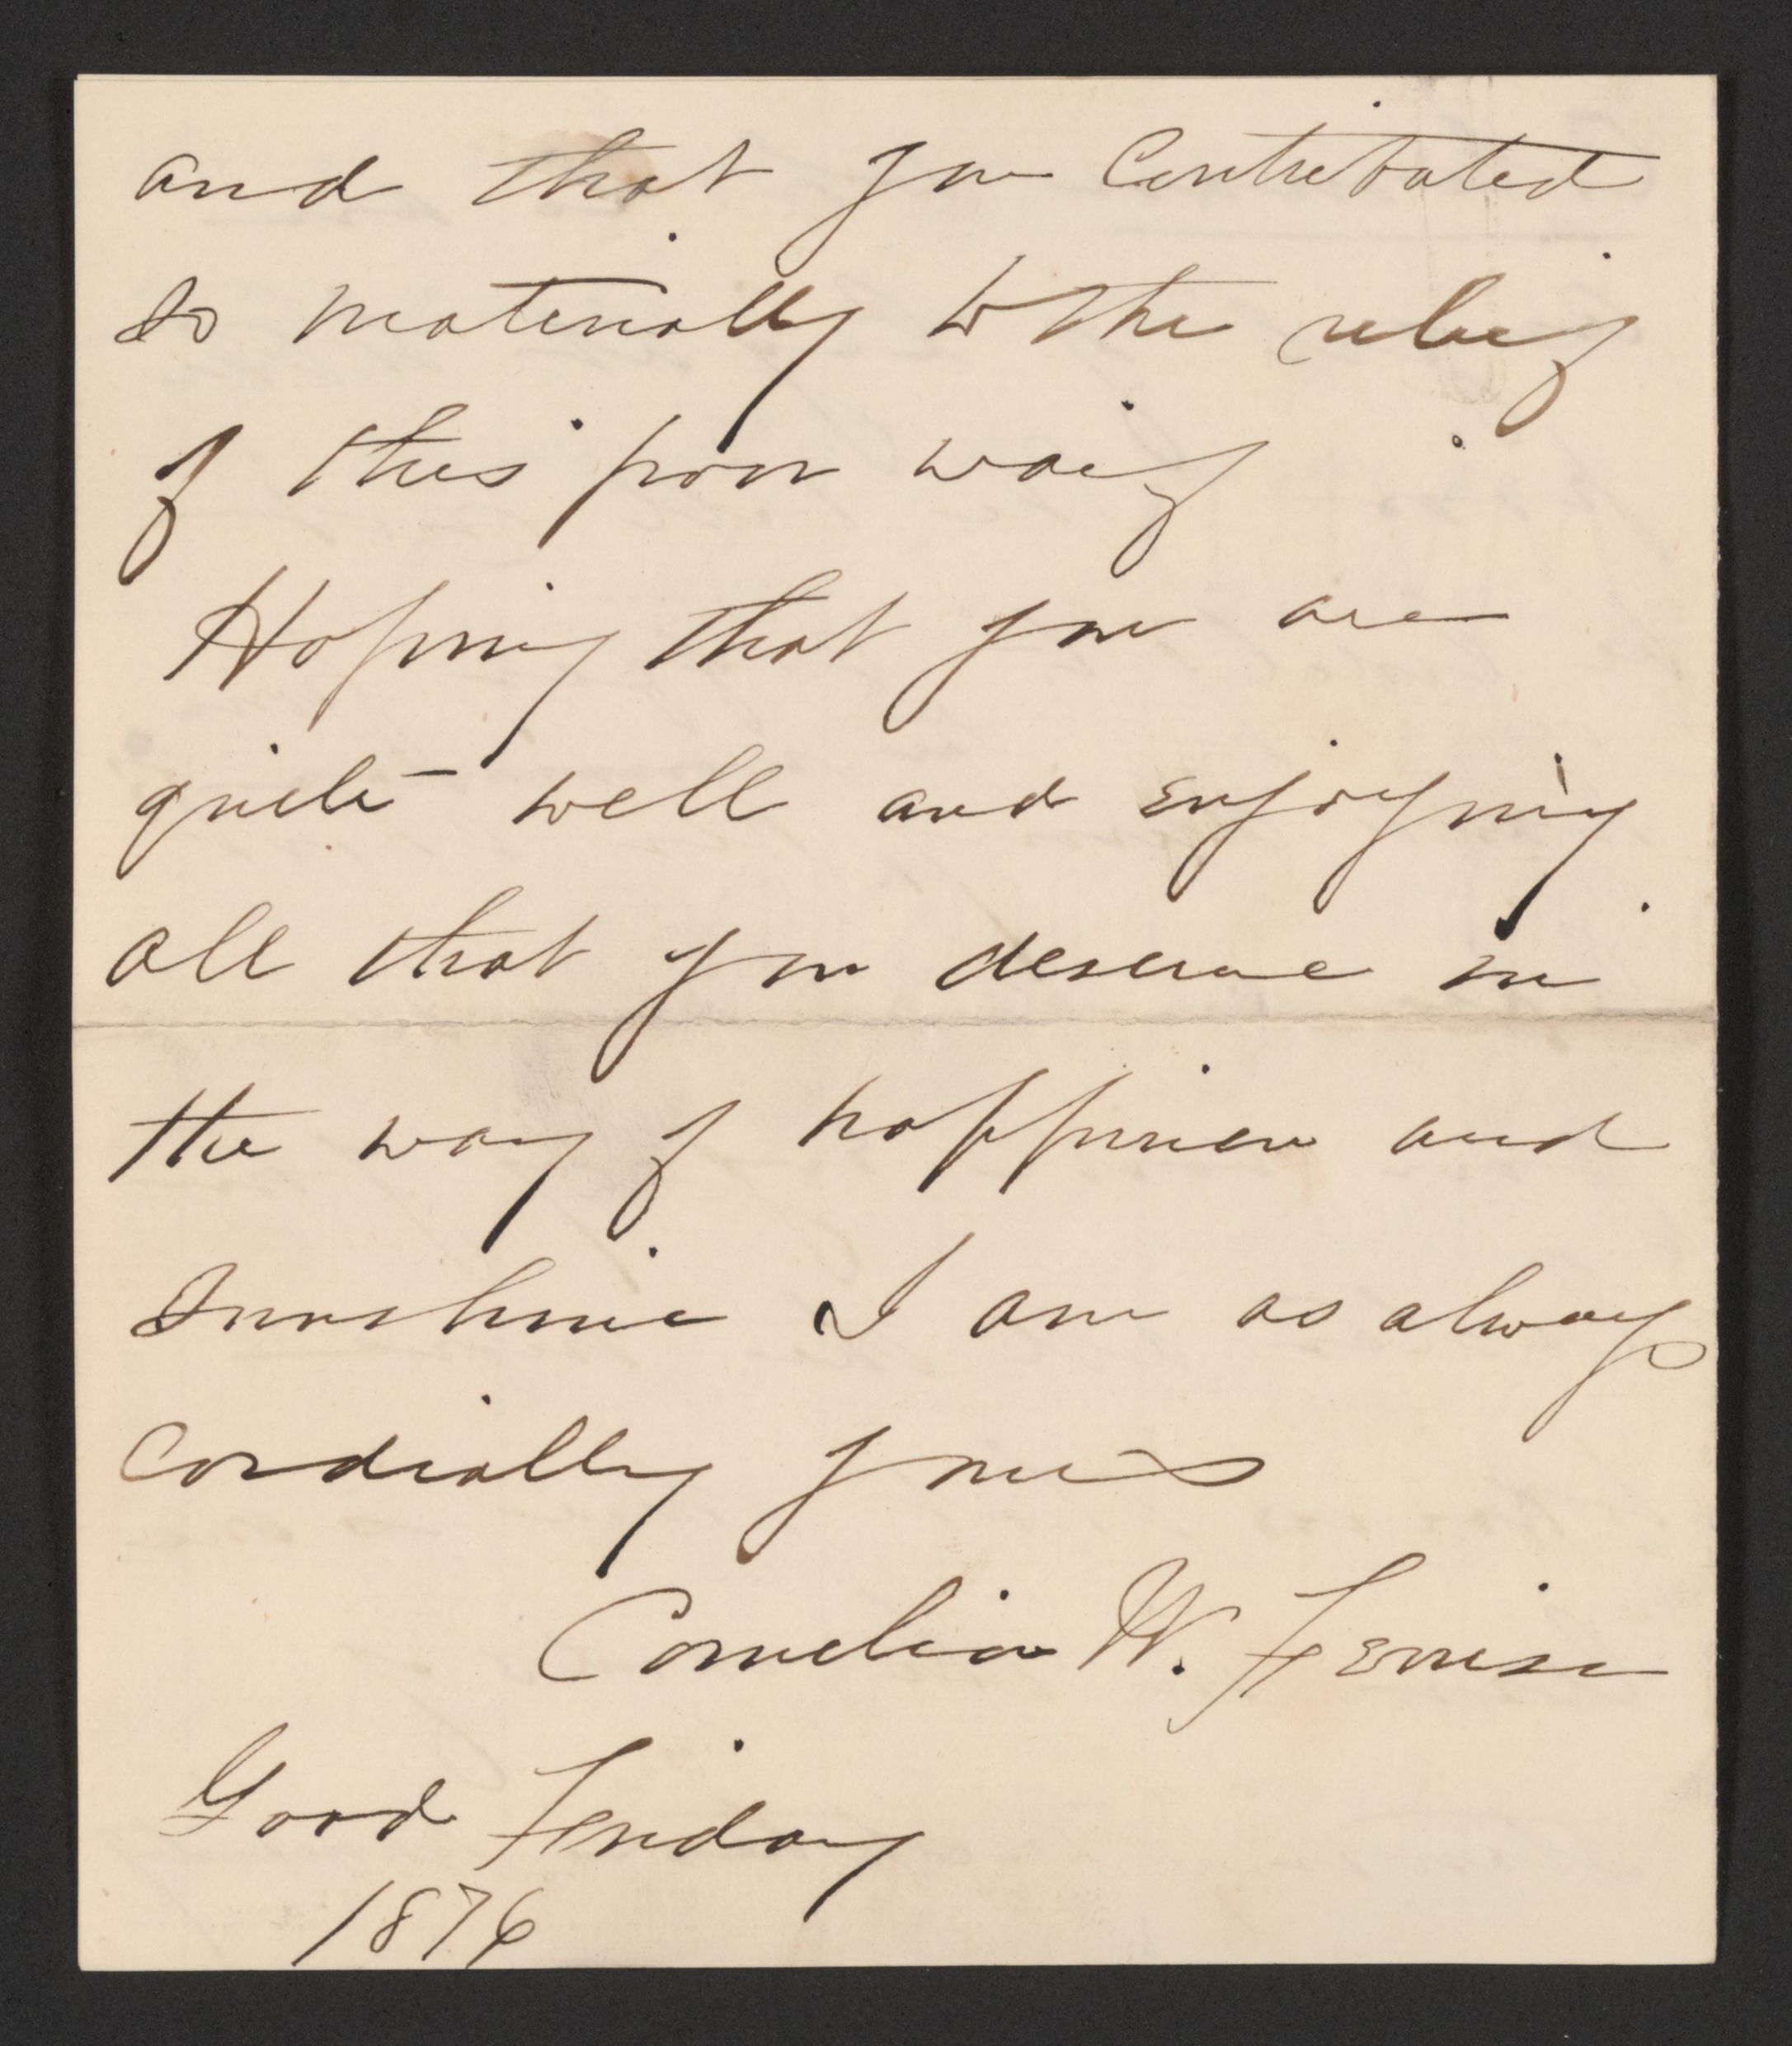 and that you Contributed
so materially to the relief
of this poor waif
Hoping that you are
quite well and enjoying
all that you deserve in
the way of happiness and
Sunshine I am as always
Cordially yours
Cornelia W.
Good Friday
1876